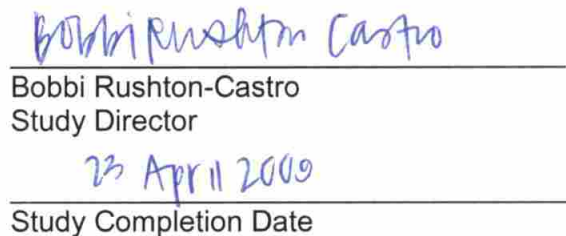 Bobbi Rushton Castro
Bobbi Rushton-Castro
Study Director
23 April 2009
Study Completion Date